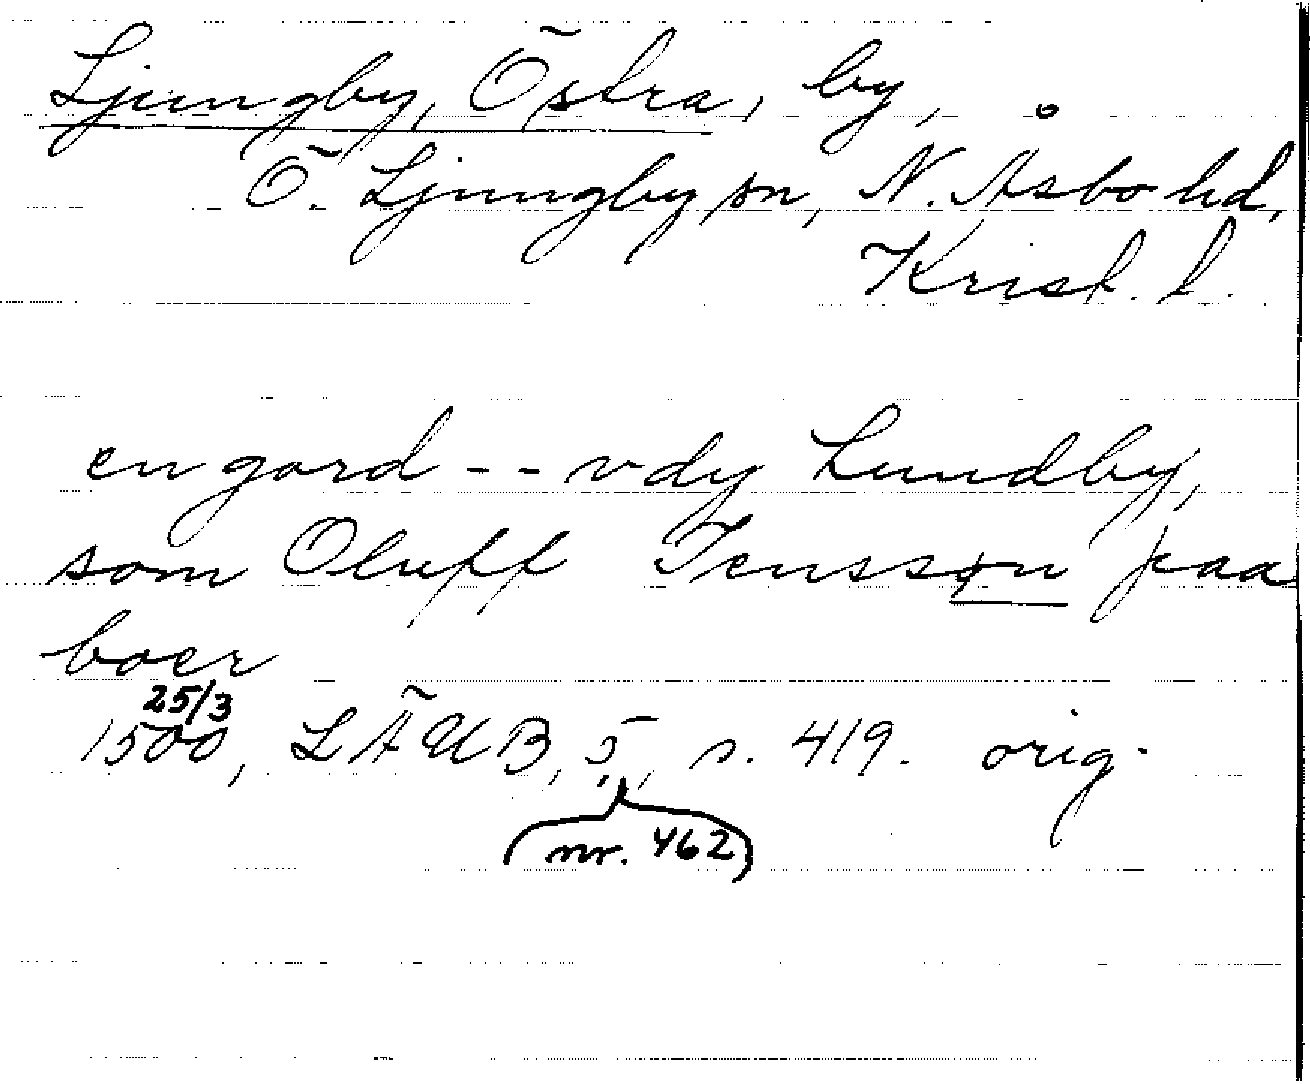 Ljungby, Östra, by,
Ö. Ljungby sn, N. Åsbo hd,
Krist. l.
en gard -- vdy Lundby,
som Oluff Jenssøn paa
boer
25/3
1500, LÄUB, 5, s. 419. orig.
(nr. 462)